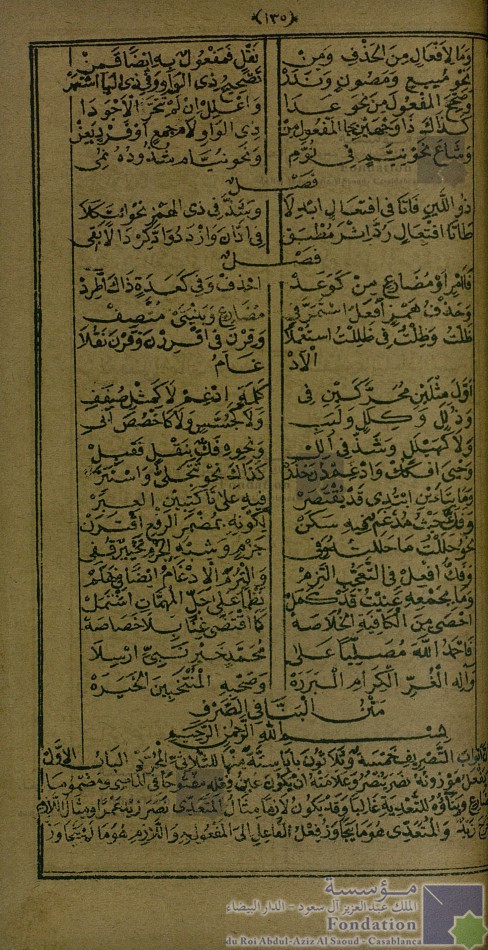 ﴿١٣٥﴾
وما لإفعال من الحذف ومن نقل فمفعول به أيضا قمن
نحو مبيع ومصون وندر تصحيح ذي الواو وفي ذي اليا اشتهر
وصحح المفعول من نحو عدا وأعلل إن لم تتحر الأجودا
كذاك ذا وجهين جا الفعول من ذي الواو لام جمع أو فرد يعن
وشاع نحو نيم في نوم ونحو نيام شذوذه نمي
فصل
ذو اللين فاتا في افتعال أبدلا وشذ في ذي الهمز نحو ائتكلا
طاتا افتعال رد إثر مطبق في ادان وازدد وادكر دالا بقي
فصل
فا أمر أو مضارع من كوعد احذف وفي كعدة ذاك اطرد
وحذف همز أفعل استمر في مضارع وبنيتي متصف
ظلت وظلت في ظللت استعملا وقرن في اقررن وقرن نقلا
الإدغام
أول مثلين محركين في كلمة ادغم لا كمثل صفف
وذلل وكلل ولبب ولا كجسس ولا كاخصص ابي
ولا كهيلل وشذ في ألل ونحوه فك بنقل فقبل
وحيي افكك وادغم دون حذر كذاك نحو تتجلى واستتر
وما بتاءين ابتدي قد يقتصر فيه على تا كتبين العبر
وفك حيث مدغم فيه سكن لكونه بمضمر الرفع اقترن
نحو حللت ما حللته وفي جزم وشبه الجزم تخيير قفي
وفك أفعل في التعجب التزم والتزم الإدغام أيضا في هلم
وما بجمعه عنيت قد كمل نظما على جل المهمات اشتمل
أحصى من الكافية الخلاصة كما اقتضى غنا بلا خصاصة
فأحمد الله مصليا على محمد خير نبي أرسلا
وآله الغر الكرام البررة وصحبه المنتخبين الخيرة
متن البنا في الصرف
بسم الله الرحمن الرحيم
أبواب التصريف خمسة وثلاثون بابا ستة منها للثلاثي المجرد الباب الأول
يفعل موزونه نصر ينصر وعلامته أن يكون عين فعله مفتوحا في الماضي ومضموما
وبناؤه للتعدية غالبا وقد يكون لازما مثال المتعدي نصر زيد عمرا ومثال اللازم
زيد والمتعدي هو ما يتجاوز فعل الفاعل إلى المفعول به واللازم هو ما لم يتجاوز
مؤسسة
الملك عبد العزيز آل سعود - الدار البيضاء
Fondation
du Roi Abdul-Aziz Al Saoud - Casablanca